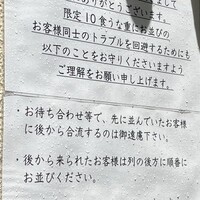 ありがとうございます。
限定10食うな重にお並びの
お客様同士のトラブルを回避するためにも
以下のことをお守りくださいますよう
ご理解をお願い申し上げます。
・お待ち合わせ等で、先に並んでいたお客様
に後から合流するのは御遠慮下さい。
・後から来られたお客様は列の後方に順番に
お並びください。